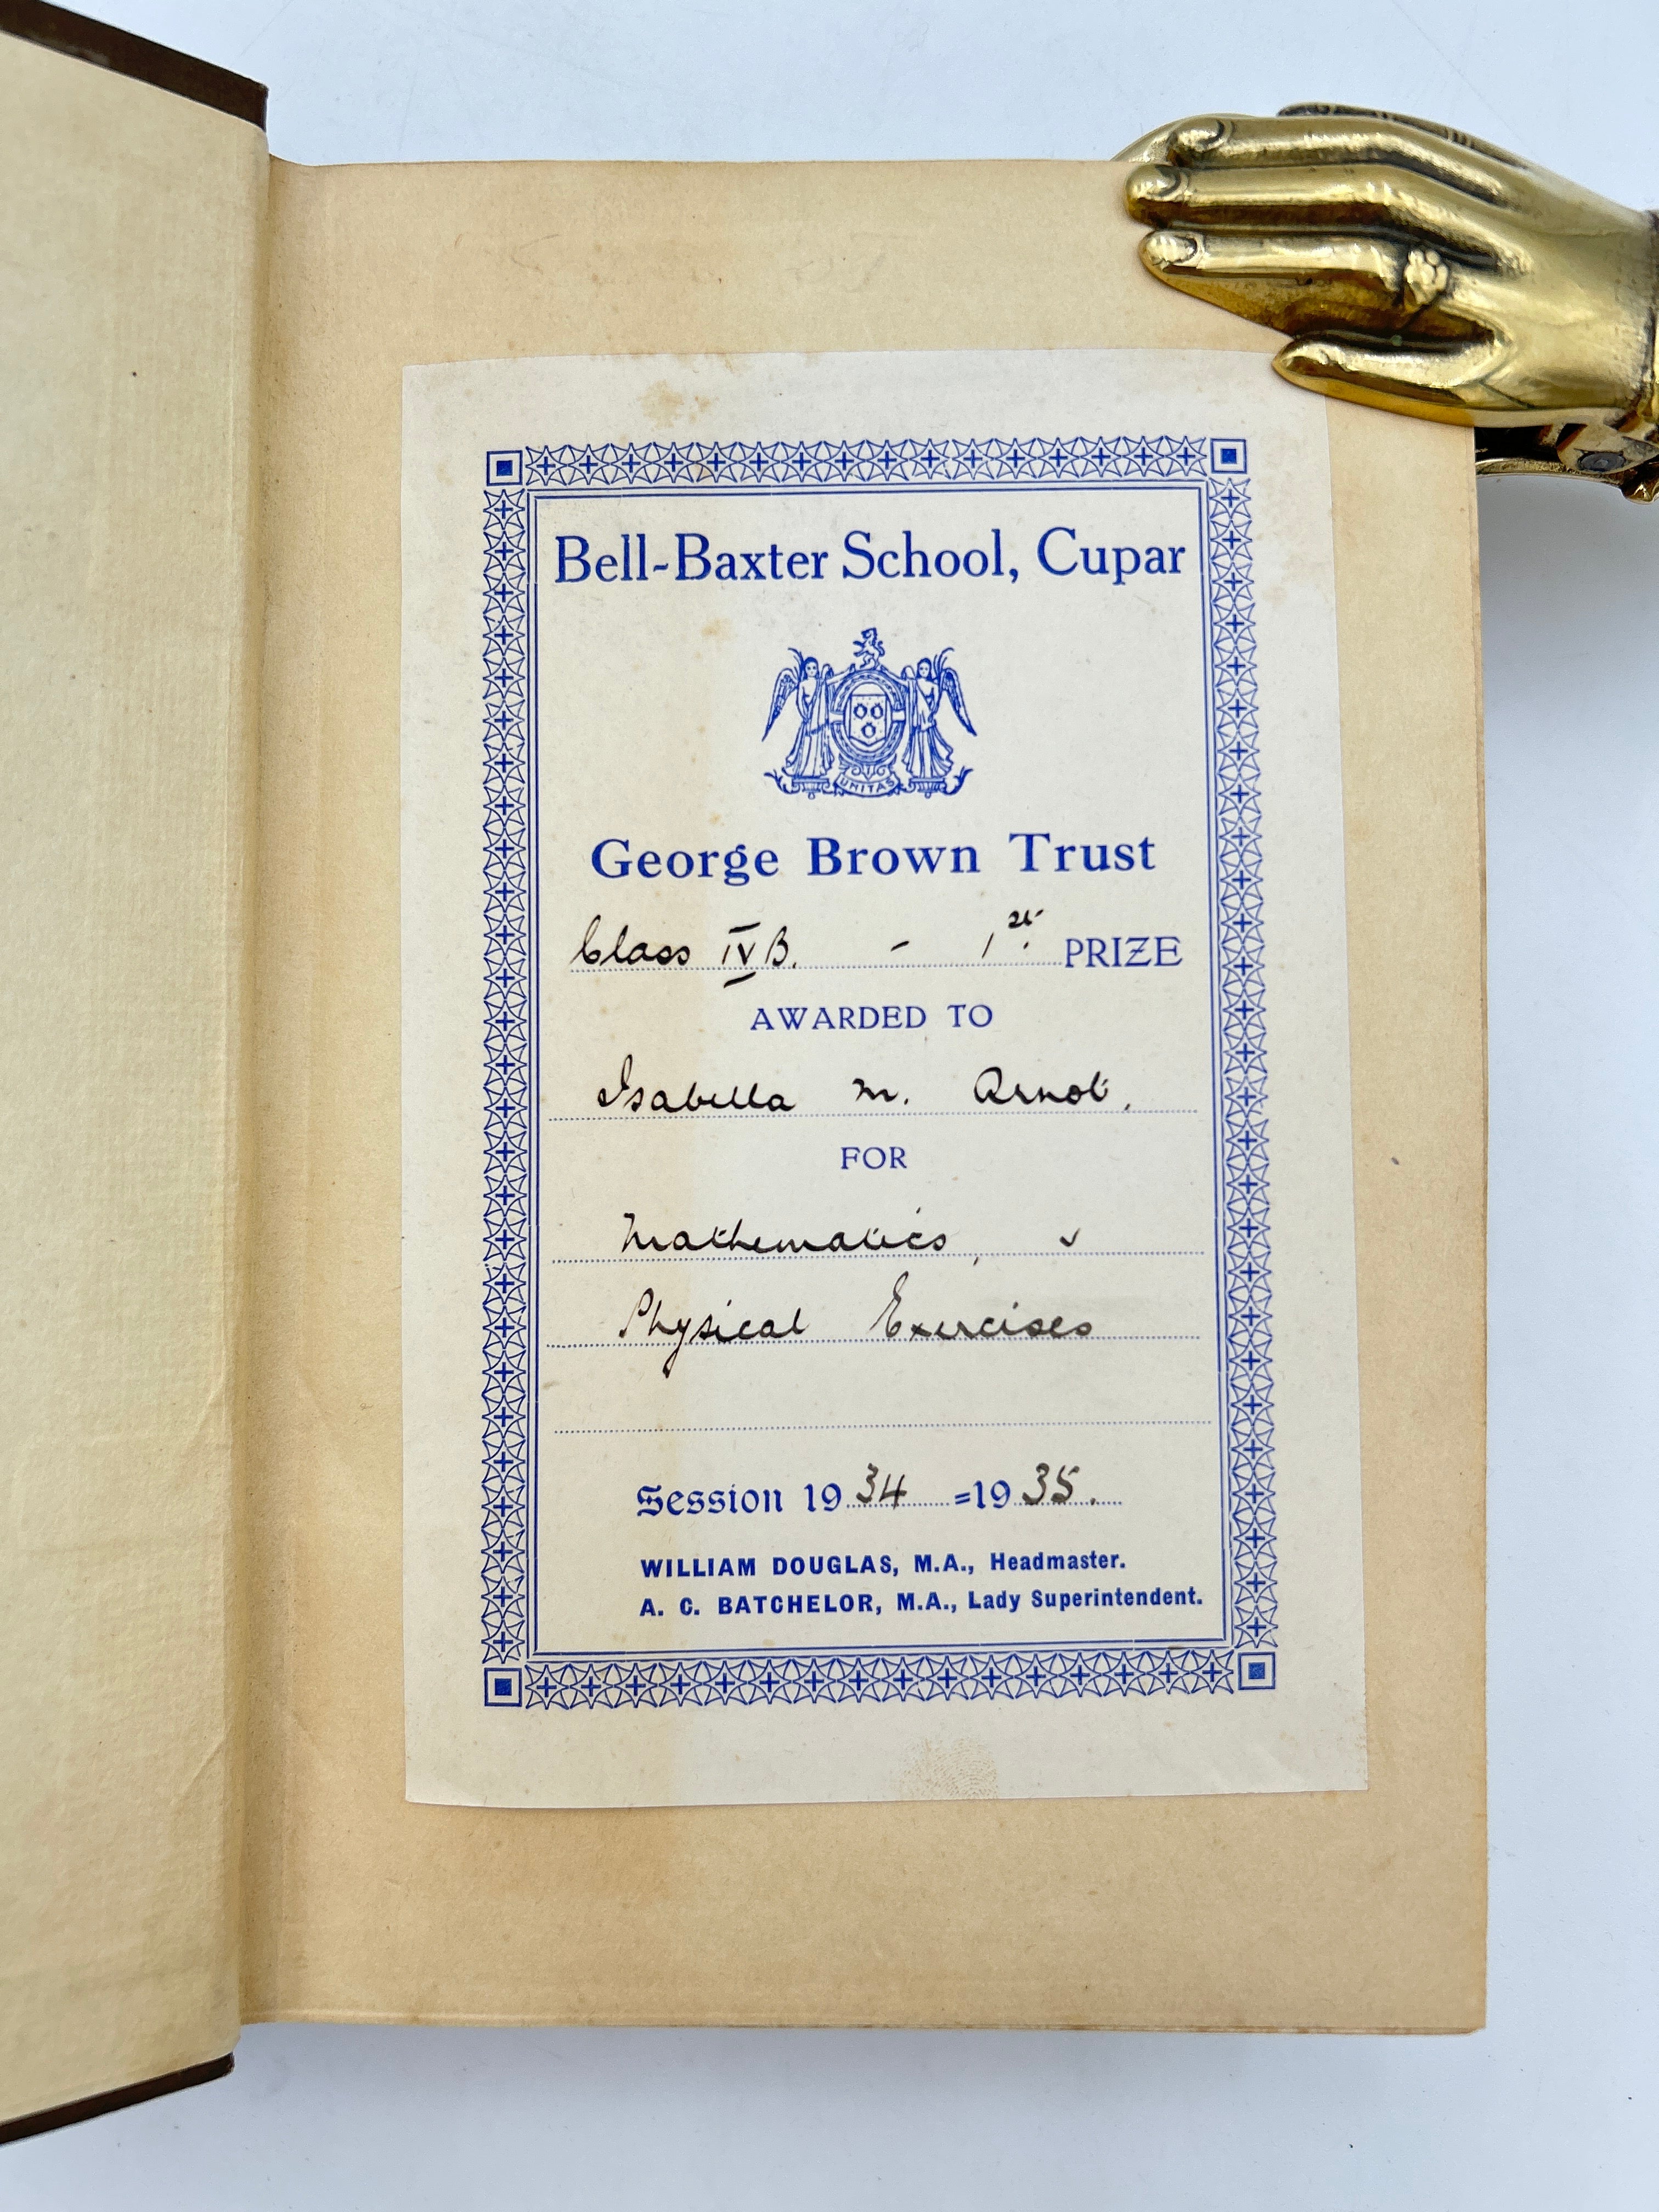 Bell-Baxter School, Cupar
UNITAS
George Brown Trust
Class IV B. - 1st. PRIZE
AWARDED TO
Isabella M. Arnot.
FOR
Mathematics, v
Physical Exercises
Session 1934=1935.
WILLIAM DOUGLAS, M.A., Headmaster.
A. C. BATCHELOR, M.A., Lady Superintendent.